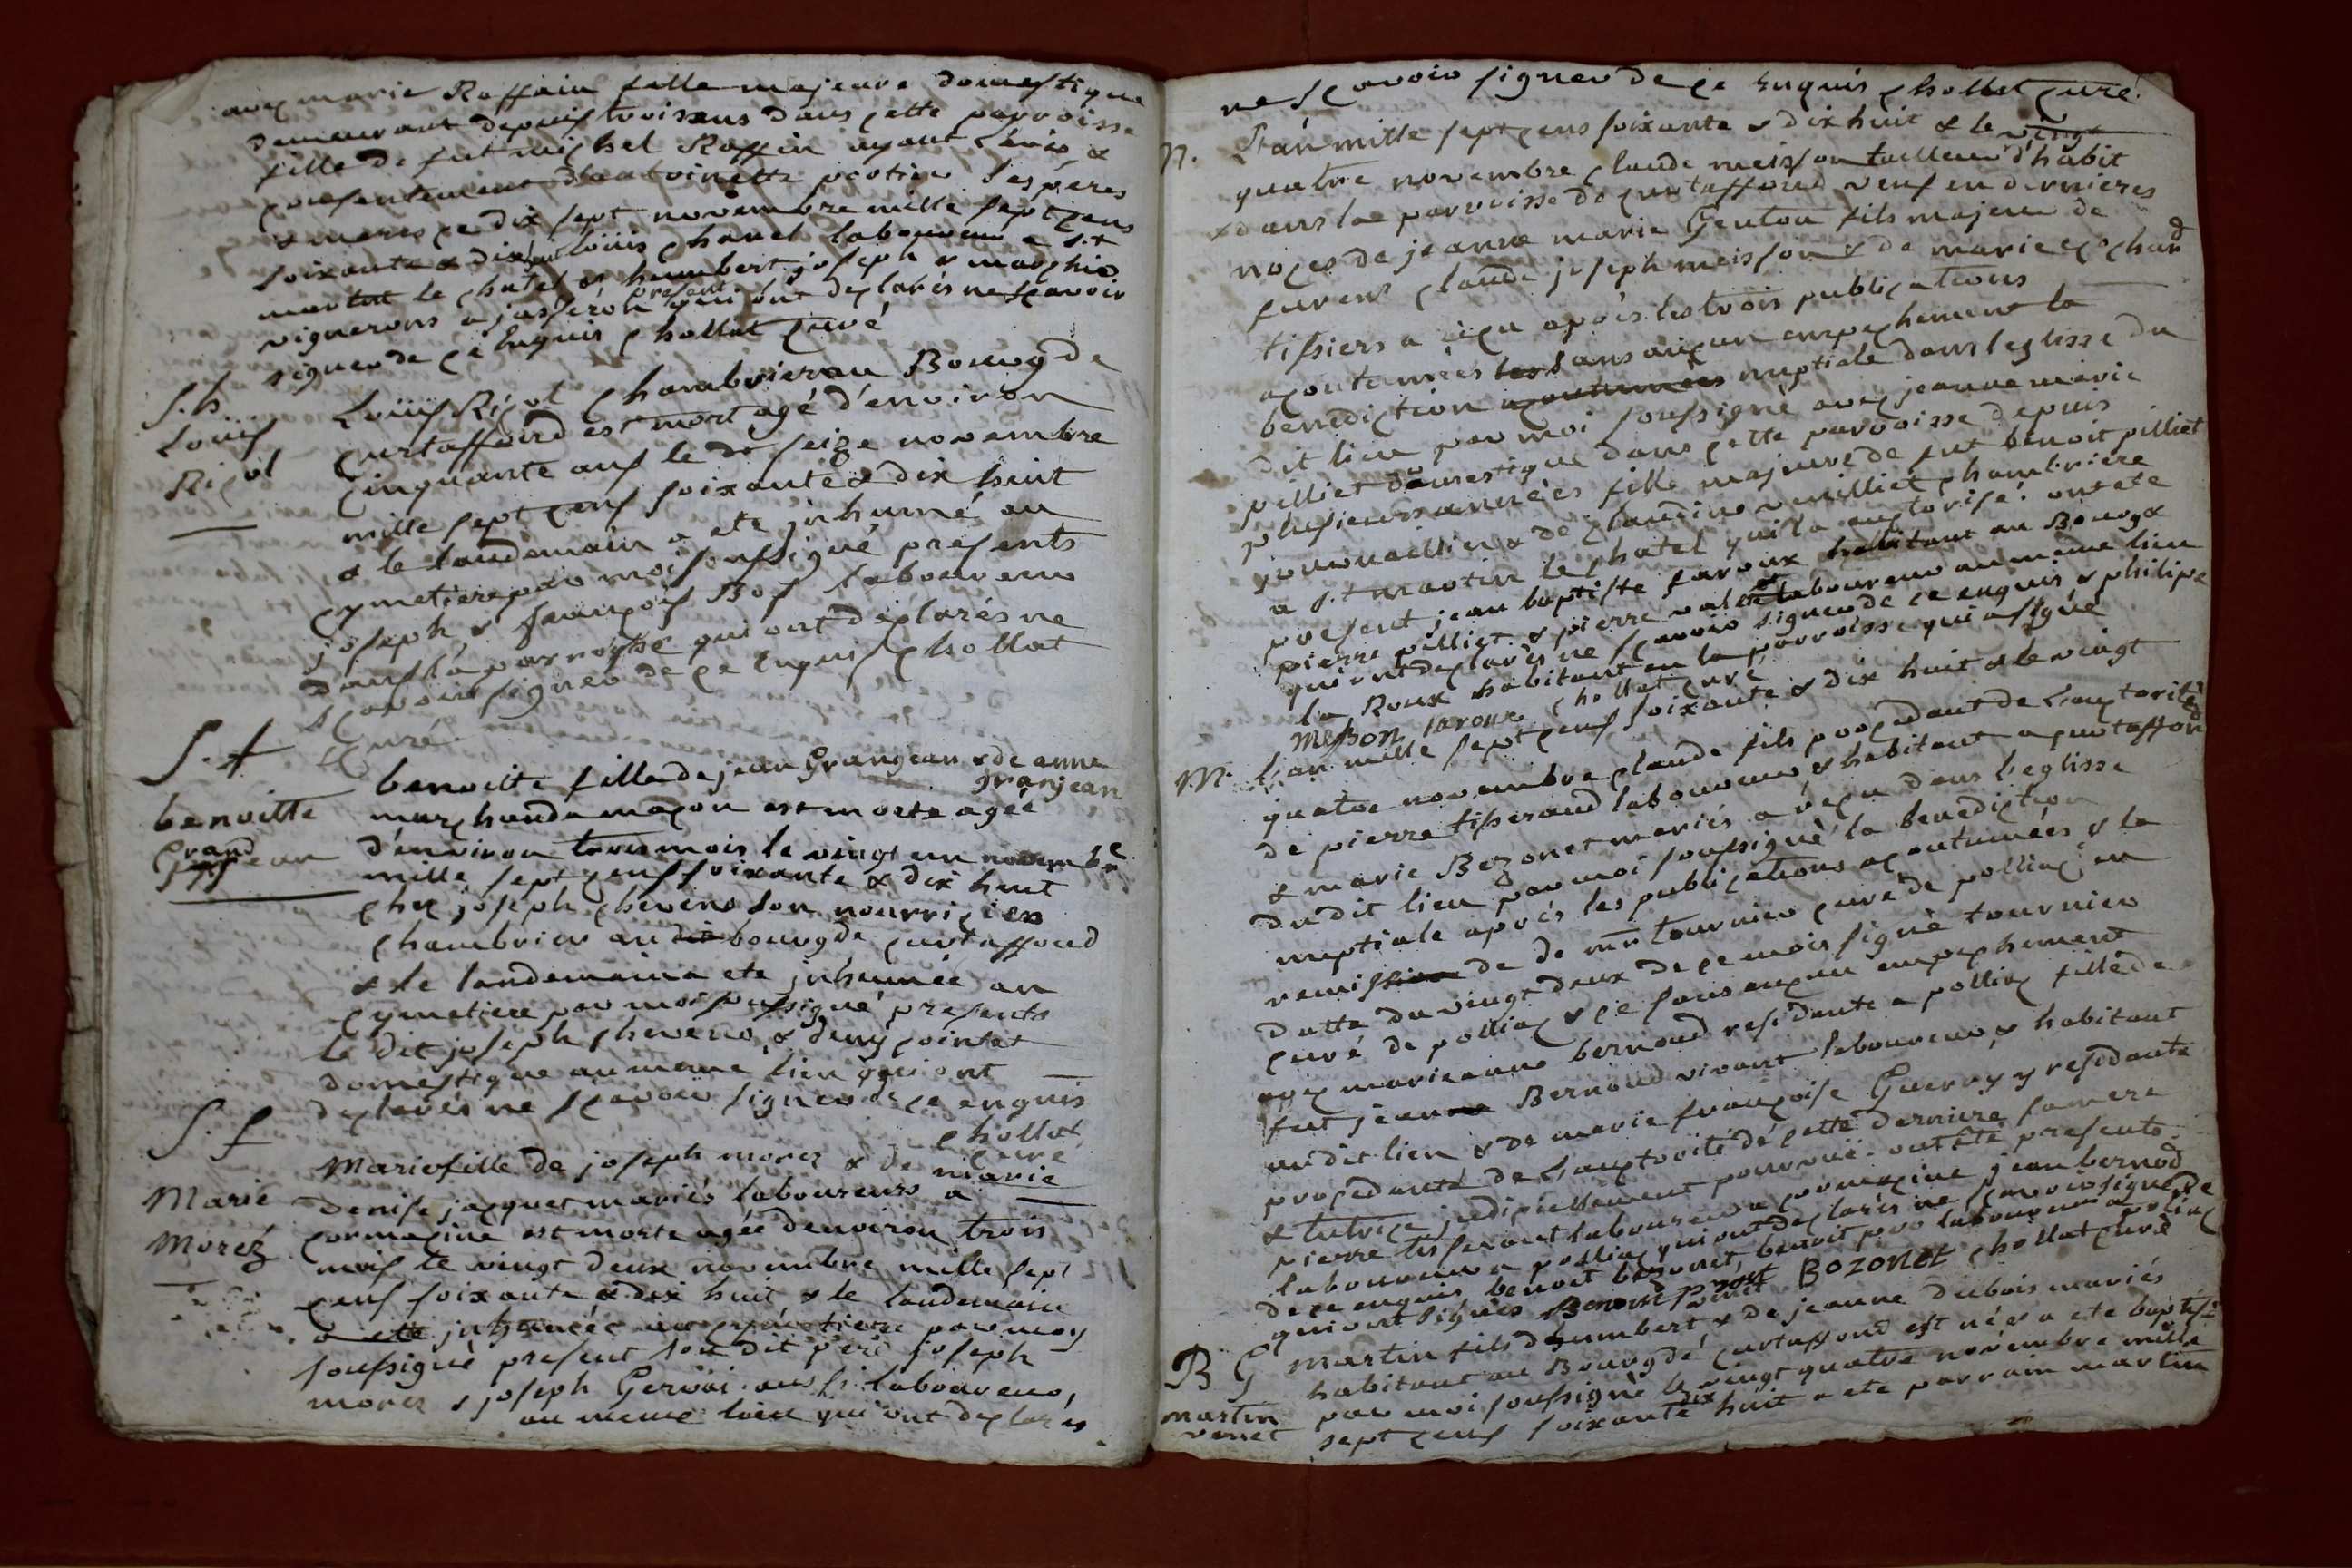 avec marie Raffain fille majeure domestique
demeurant depuis trois ans dans cette parroisse
fille de fut michel Raffin ayant
consentement d'antoinette ses peres
& meres ce dix sept novembre mille sept cens
soixante & dixhuit loüis chanel laboureur a s.t
martin le chatel & humbert joseph &
vignerons a jasseron present qui ont declarés ne scavoir
signer de ce Enquis chollat curé
S.h
Loüis
Riçol
Loüis Riçol chambrier au Bourg de
curtaffond est mort agé d'environ
cinquante ans le seize novembre
mille sept cens soixante & dix huit
& le landemain a ete inhumé au
cymetiere par moi soussigné presents
joseph & françois Bos laboureur
dans la parroysse qui ont déclarés ne
sçavoir signer de ce Enquis chollat
Curé
S. f
benoitte
Grand
jean
benoitte fille de jean Granjean & de anne
granjean
marchande maçon est morte agée
d'environ trois mois le vingt un novembre
mille sept cens soixante & dix huit
chez joseph chevens son nourricier
chambrier au dit bourg de curtaffond
& le landemain a ete inhumée au
cymetiere par moi soussigné presents
le dit joseph & deny cointet
domestique au meme lieu qui ont
declarés ne scavoir signer de ce enquis
chollat
curé
S. f
Marie
Morez
Marie fille de joseph morez & de marie
denise jacquet mariés laboureurs a
cormacine est morte agée d'environ trois
mois le vingt deux novembre mille sept
cens soixante & dix huit & le landemain
a eté inhumée au cymetiere par moy
soussigné present son dit pere joseph
morez & joseph Gervai aussi laboureur,
au meme lieu qui ont declarés
ne sçavoir signer de ce Enquis chollat curé
M. L'an mille sept cens soixante & dix huit & le vingt
quatre novembre claude meisson tailleur d'habit
dans la parroisse de curtaffond veuf en dernieres
noces de jeanne marie Genton fils majeur de
furent claude joseph meisson & de marie
tissiers a reçu après les trois publications
acoutumées les sans auçun empechement la
benediction acoutumées nuptiale dans l'eglisse du
dit lieu par moi soussigné avec jeanne marie
pilliet domestique dans cette parroisse depuis
plusieurs années fille majeure de fut benoit pilliet
journallier & de claudine chambriere
a s.t martin le chatel qui l'a auctorisé. ont eté
present jean baptiste laroux habitant au Bourg &
pierre pilliet & pierre laboureur au meme lieu
qui ont declarés ne sçavoir signer de ce enquis & philipe
la Roux habitant en la parroisse qui a signé
messon laroux chollat curé
M. L'an mille sept cens soixante & dix huit & le vingt
quatre novembre claude fils procedant de L'auctorité
de pierre tisserand laboureur & habitant a curtaffond
& marie Bozonet mariés a reçu dans l'eglisse
du dit lieu par moi soussigné la benediction
nuptiale après les publications acoutumées & la
remission de de mr tournier curé de polliaç en
datte du vingt deux de ce mois signé tournier
curé de polliaç & ce sans aucun empechement
aveç marie anne bernoud residante a polliaç fille de
fut jean Bernoud vivant laboureur & habitant
au dit lieu & de marie françoise Guerry y residante
procedante de L'auctorité de cette derniere sa mere
& tutrice judiciellement pourvuë. ont été presents
pierre tisserant laboureur a cormaçine jean bernod
laboureur a polliaç qui ont declarés ne sçavoir signer de
de ce enquis benoit bozonet, benoit laboureur a polliaç
qui ont signés Benoit Bozonet chollat curé
B G
martin
verret
martin fils d'humbert & de jeanne dubois mariés
habitant au Bourg de curtaffond est né & a ete baptisé
par moi soussigné le vingt quatre novembre mille
sept cens soixante dix huit a ete parrain martin